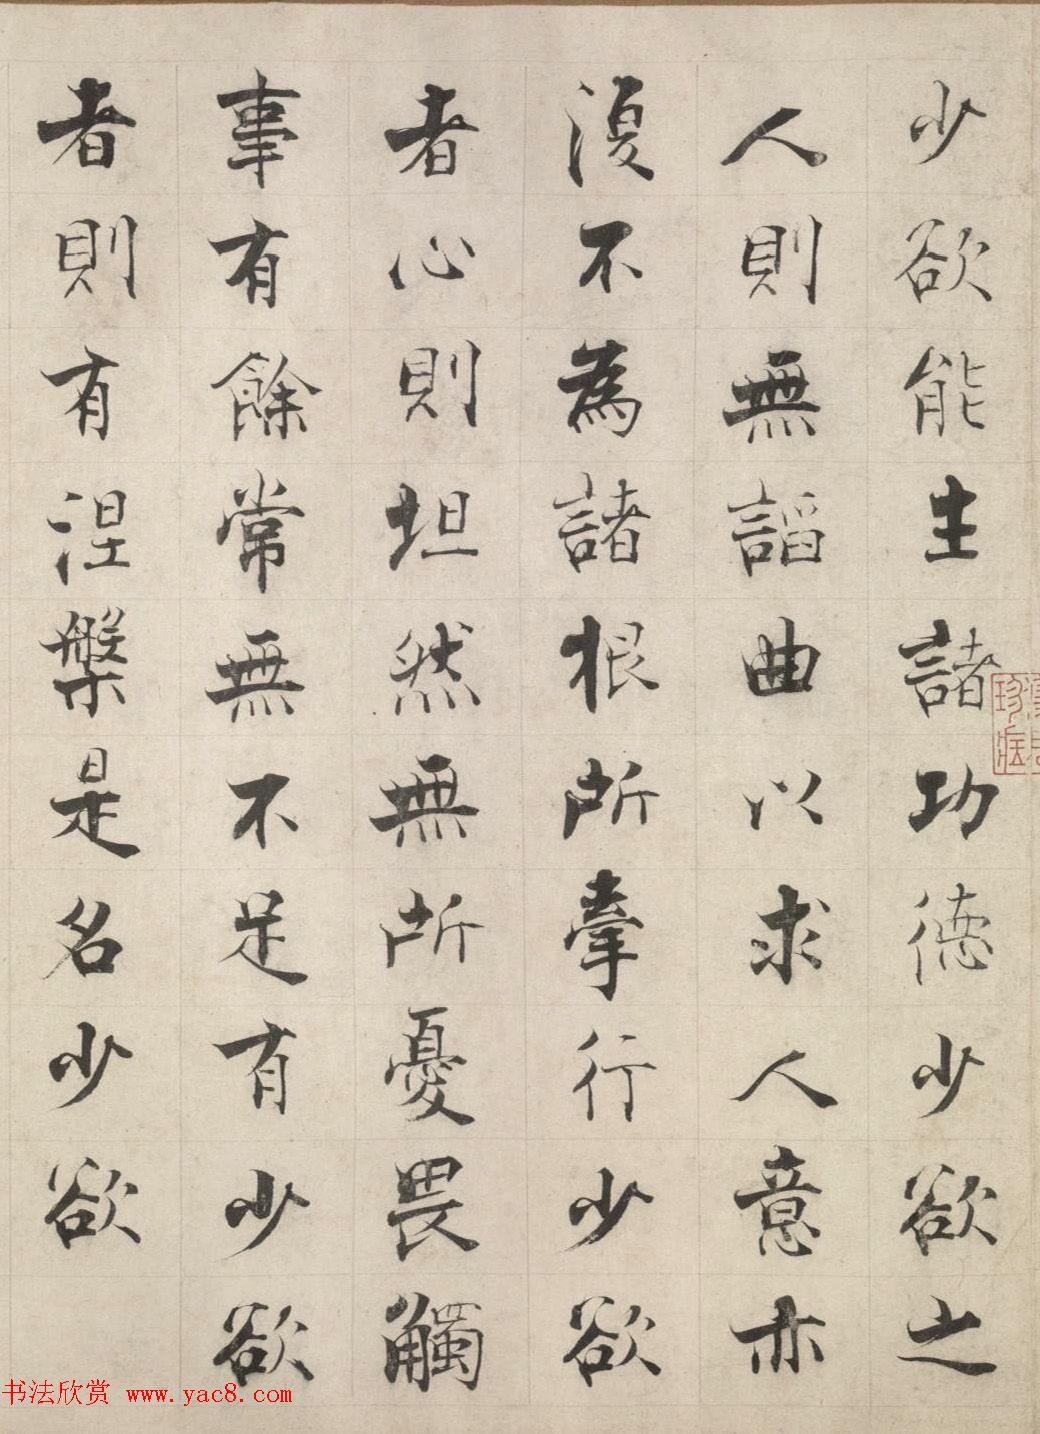 少欲能主諸功德少欲之
人則無謟曲以求人意亦
復不為諸根所牽行少欲
者心則坦然無所憂畏觸
事有餘常無不足有少欲
者則有涅槃是名少欲
书法欣赏 www.yac8.com